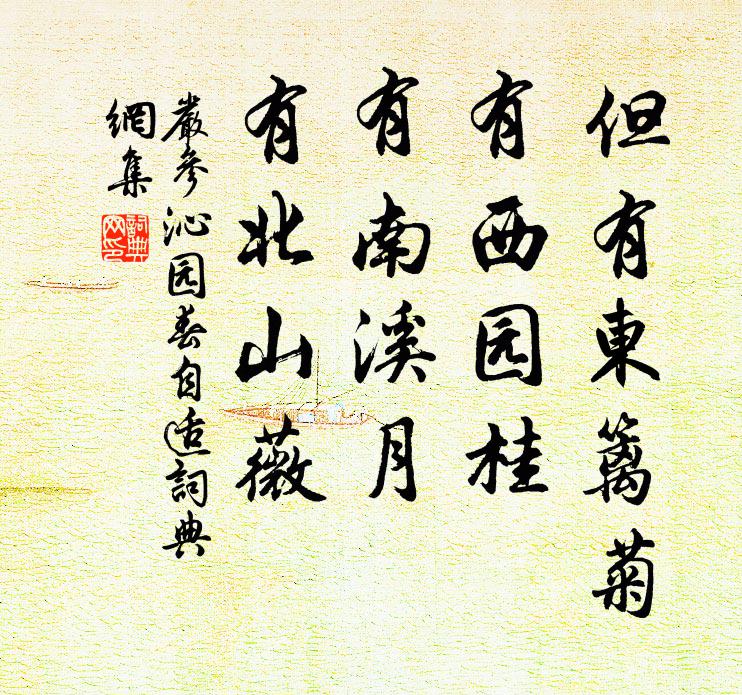 但有東籬菊
有西园桂
有南溪月
有北山薇
嚴參沁园春自适詞典
網集
詞典
网印